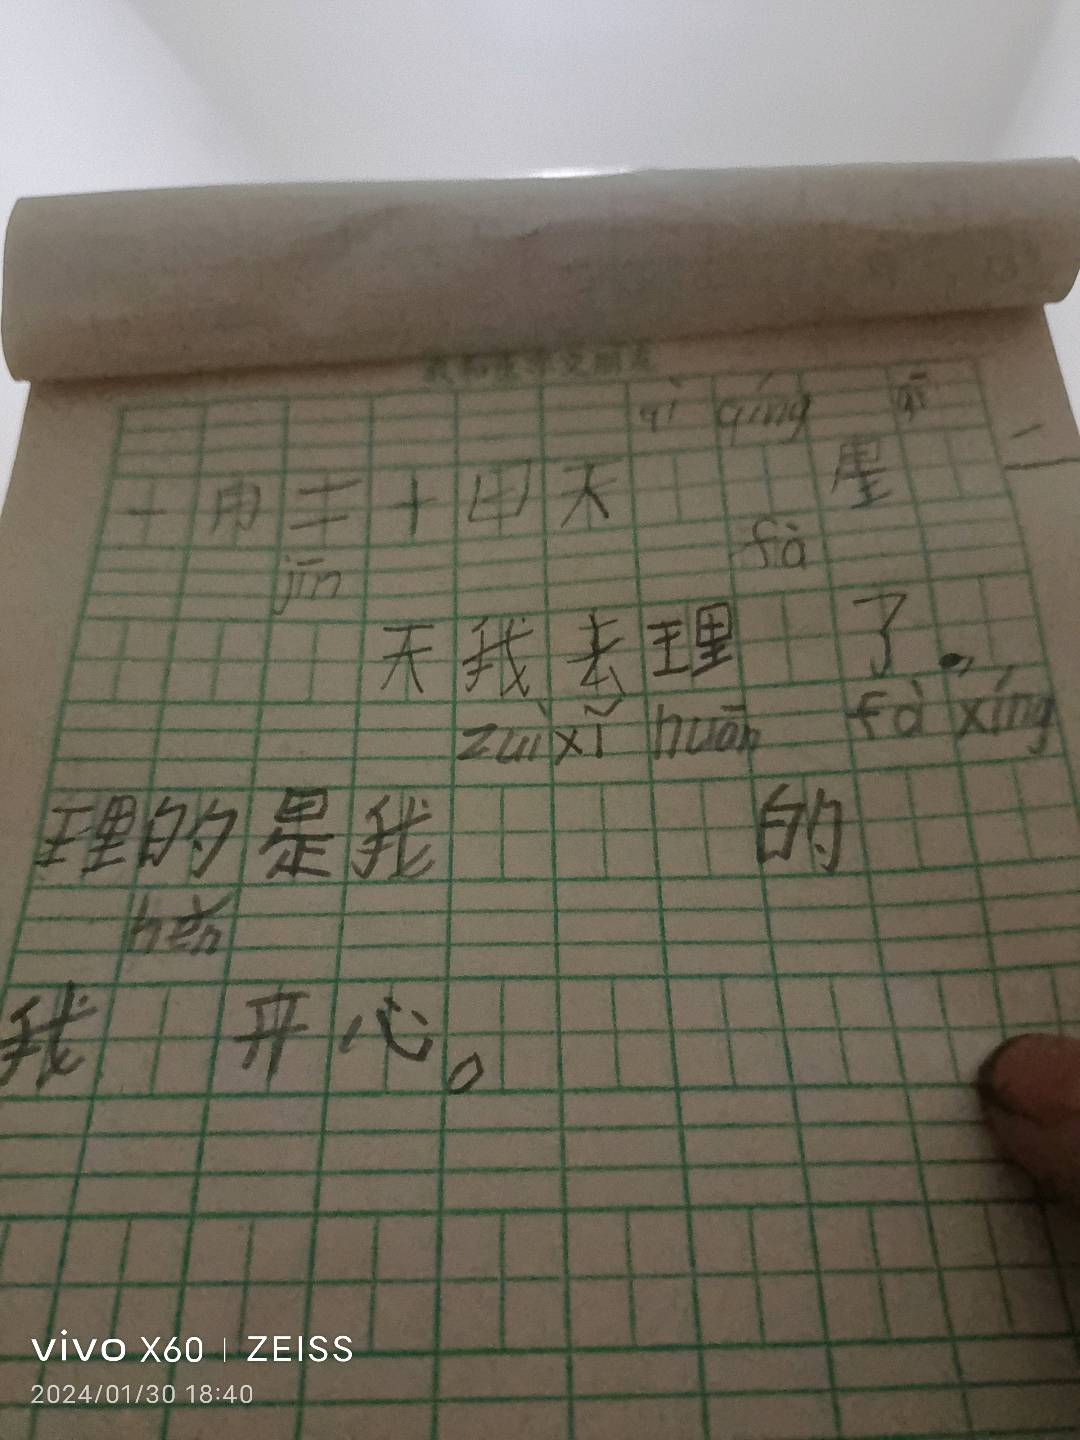 qì qíng qī
一月三十日天 星 二
jīn fà
天我去理 了。
zuì xǐ huān fà xíng
理的是我 的
hěn
我 开心。
vivo X60 | ZEISS
2024/01/30 18:40